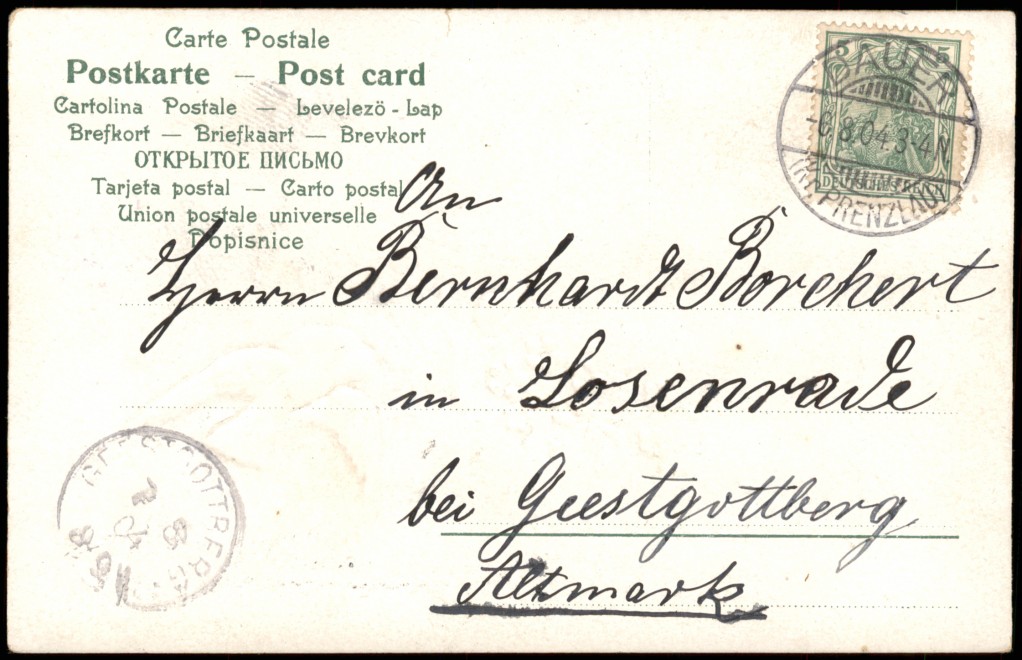 Carte Postale
Postkarte — Post card
Cartolina Postale — Levelezö-Lap
Brefkort — Briefkaart — Brevkort
ОТКРЫТОЕ ПИСЬМО
Tarjeta postal — Carto postal
Union postale universelle
Dopisnice
5 5
DEUTSCHES REICH
8.04.3-4N
PRENZLAU
An
Herrn Bernhardt Borchert
in Losenrade
bei Geestgottberg
Altmark
GEESTGOTTBERG